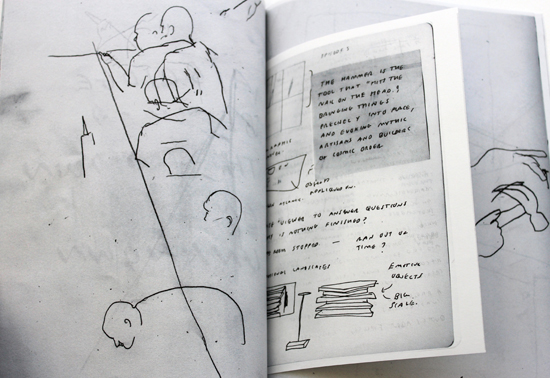 THE HAMMER IS THE
TOOL THAT "HITS THE
NAIL ON THE HEAD."
BRINGING THINGS
PRECISELY INTO PLACE,
AND EVOKING MYTHIC
ARTISANS AND BUILDERS
OF COSMIC ORDER
OBJECTS
VIEWER TO ANSWER QUESTIONS
IS NOTHING FINISHED?
STOPPED — RAN OUT OF
TIME?
LANGUAGES
EMOTIVE
OBJECTS
BIG
SCALE.